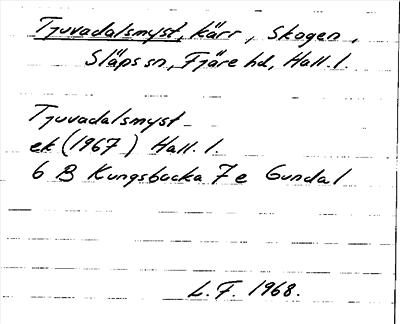 Tjuvadalsmyst, kärr, Skogen,
Släps sn, Fjäre hd, Hall. l.
Tjuvadalsmyst
ek (1967) Hall. l.
6 B Kungsbacka 7 e Gundal
L. F. 1968.